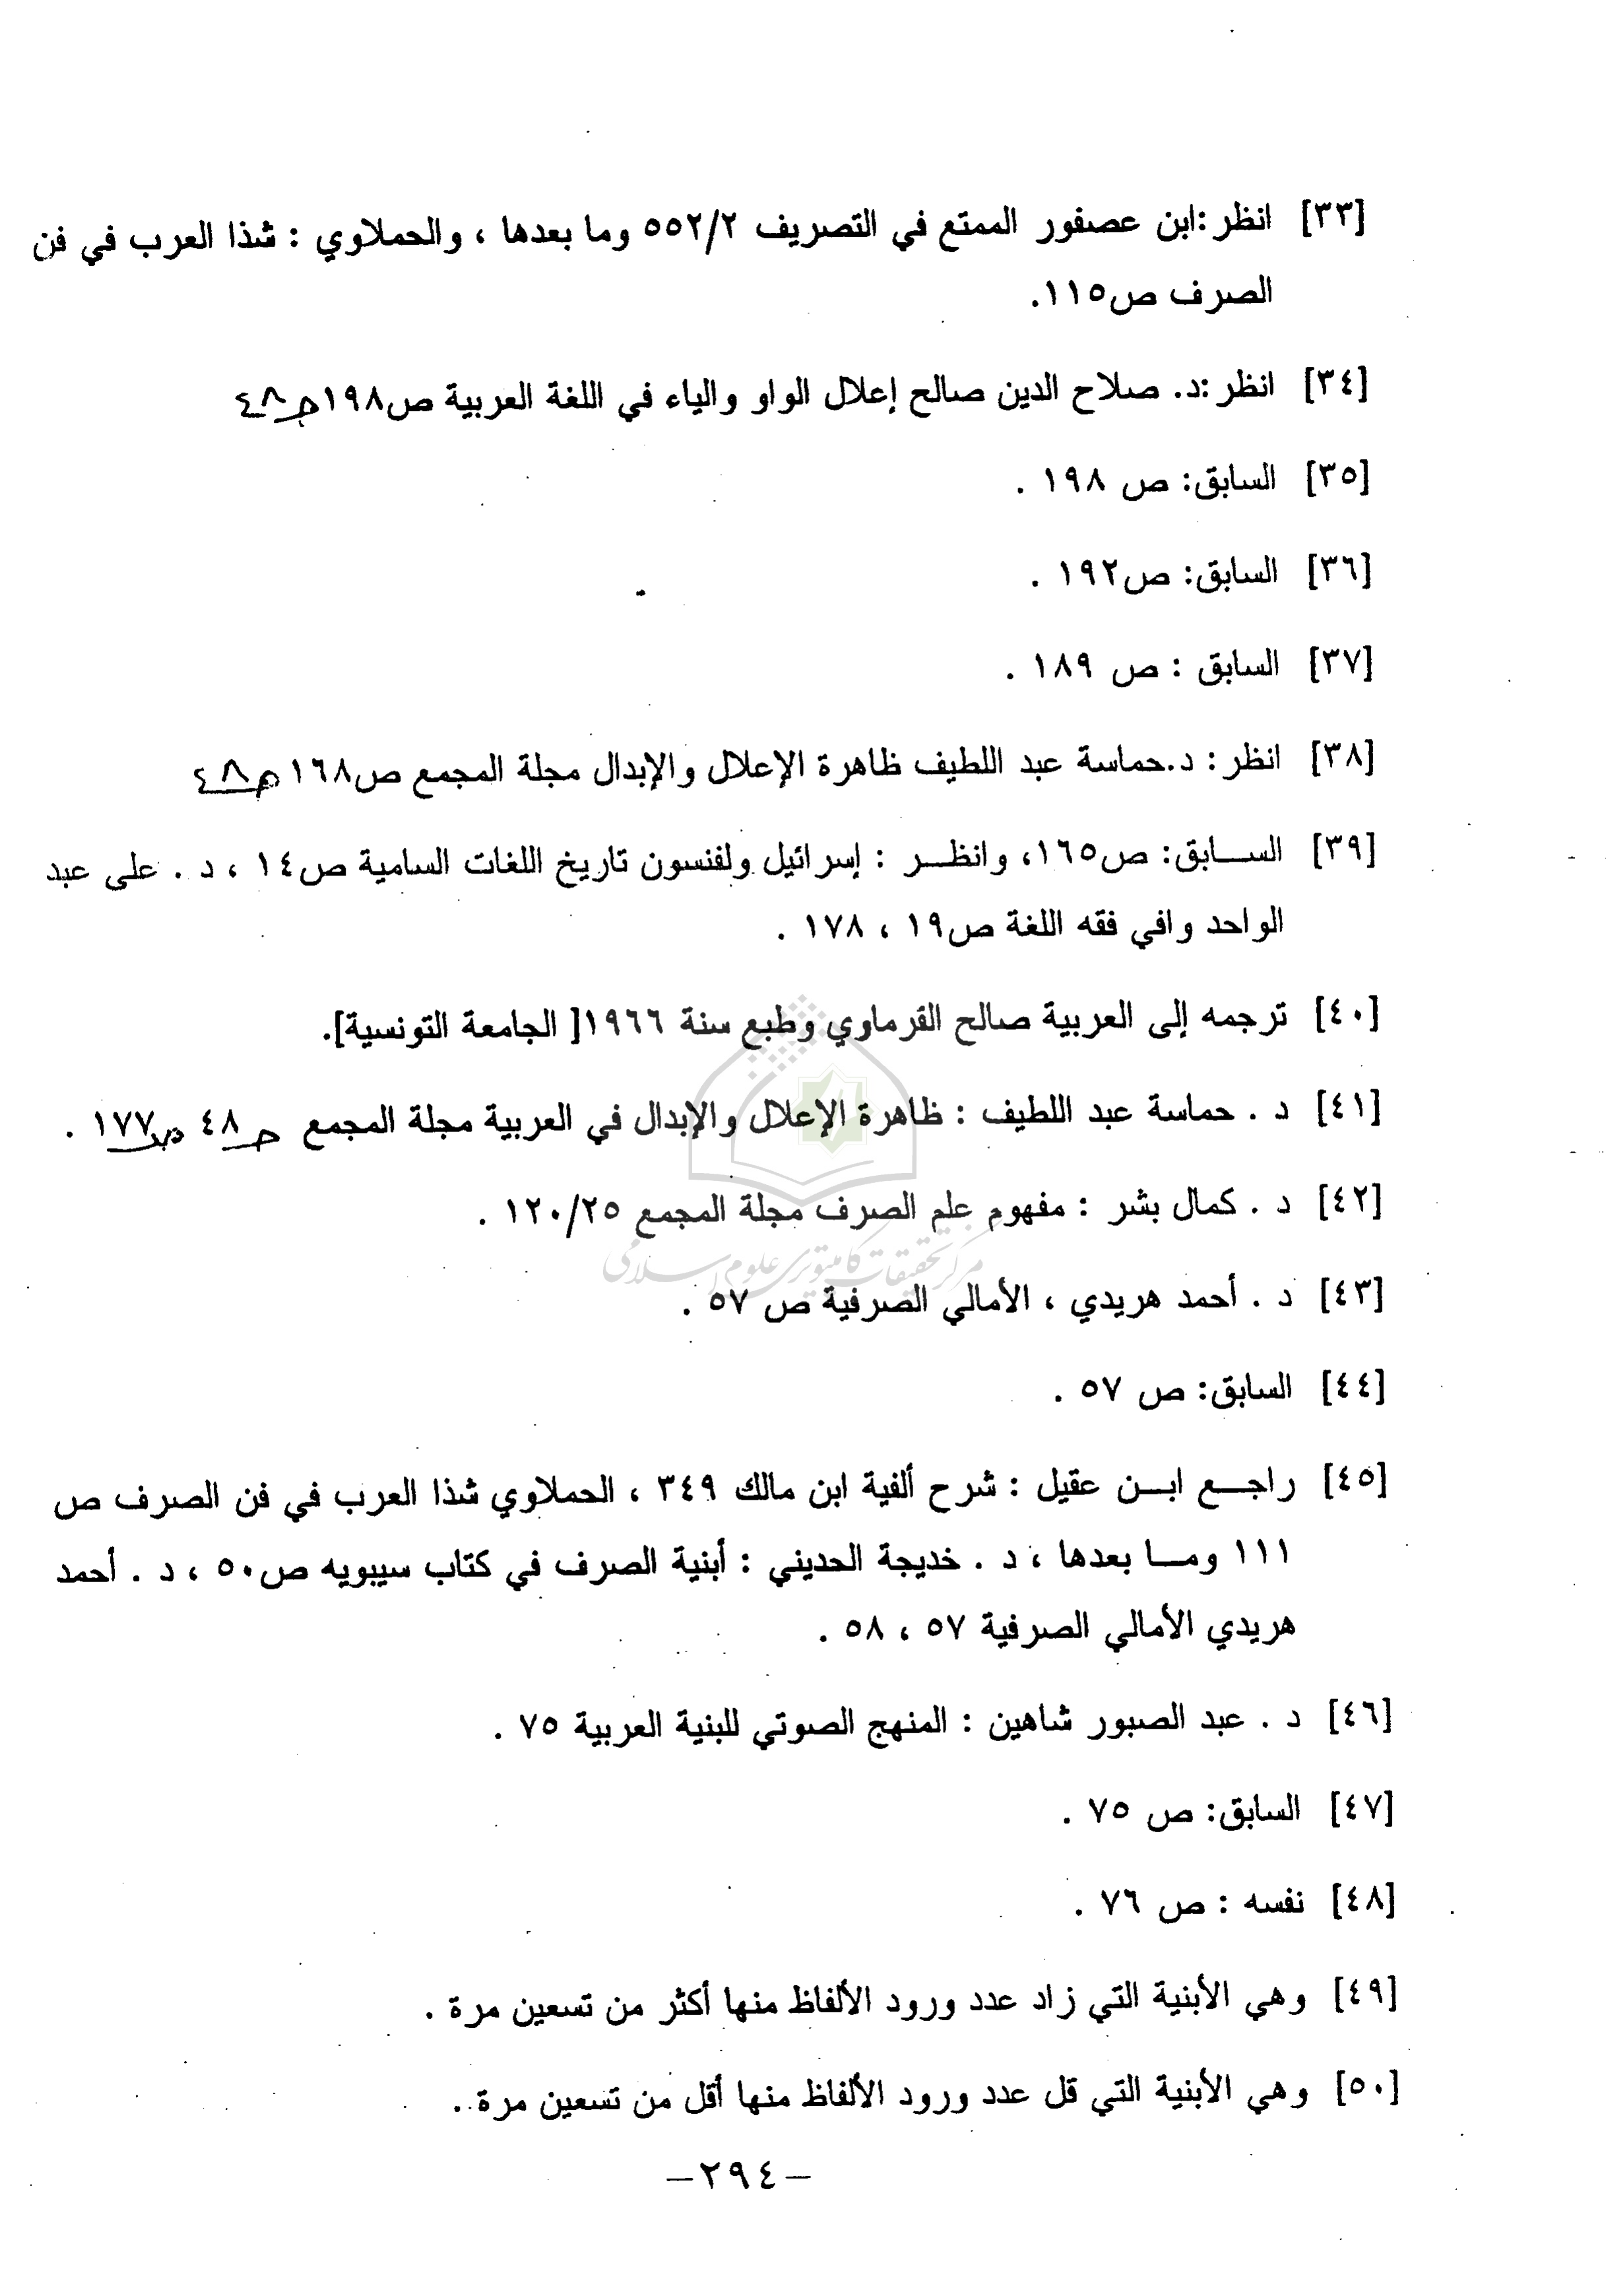 [٣٣] انظر :ابن عصفور الممتع في التصريف ٥٥٢/٢ وما بعدها ، والحملاوي : شذا العرب في فن
الصرف ص١١٥.
[٣٤] انظر :د. صلاح الدين صالح إعلال الواو والياء في اللغة العربية ص١٩٨ حـ٤٨
[٣٥] السابق: ص ١٩٨ .
[٣٦] السابق: ص١٩٢ .
[٣٧] السابق : ص ١٨٩ .
[٣٨] انظر : د.حماسة عبد اللطيف ظاهرة الإعلال والإبدال مجلة المجمع ص١٦٨ حـ٤٨
[٣٩] الســابق: ص١٦٥، وانظــر : إسرائيل ولفنسون تاريخ اللغات السامية ص١٤ ، د . على عبد
الواحد وافي فقه اللغة ص١٩ ، ١٧٨ .
[٤٠] ترجمه إلى العربية صالح القرماوي وطبع سنة ١٩٦٦[ الجامعة التونسية].
[٤١] د . حماسة عبد اللطيف : ظاهرة الإعلال والإبدال في العربية مجلة المجمع حـ ٤٨ ص١٧٧ .
[٤٢] د . كمال بشر : مفهوم علم الصرف مجلة المجمع ١٢٠/٢٥ .
مركز تحقيقات كامپيوترى علوم اسلامى
[٤٣] د . أحمد هريدي ، الأمالي الصرفية ص ٥٧ .
[٤٤] السابق: ص ٥٧ .
[٤٥] راجــع ابــن عقيل : شرح ألفية ابن مالك ٣٤٩ ، الحملاوي شذا العرب في فن الصرف ص
١١١ ومــا بعدها ، د . خديجة الحديني : أبنية الصرف في كتاب سيبويه ص٥٠ ، د . أحمد
هريدي الأمالي الصرفية ٥٧ ، ٥٨ .
[٤٦] د . عبد الصبور شاهين : المنهج الصوتي للبنية العربية ٧٥ .
[٤٧] السابق: ص ٧٥ .
[٤٨] نفسه : ص ٧٦ .
[٤٩] وهي الأبنية التي زاد عدد ورود الألفاظ منها أكثر من تسعين مرة .
[٥٠] وهي الأبنية التي قل عدد ورود الألفاظ منها أقل من تسعين مرة .
–٢٩٤–